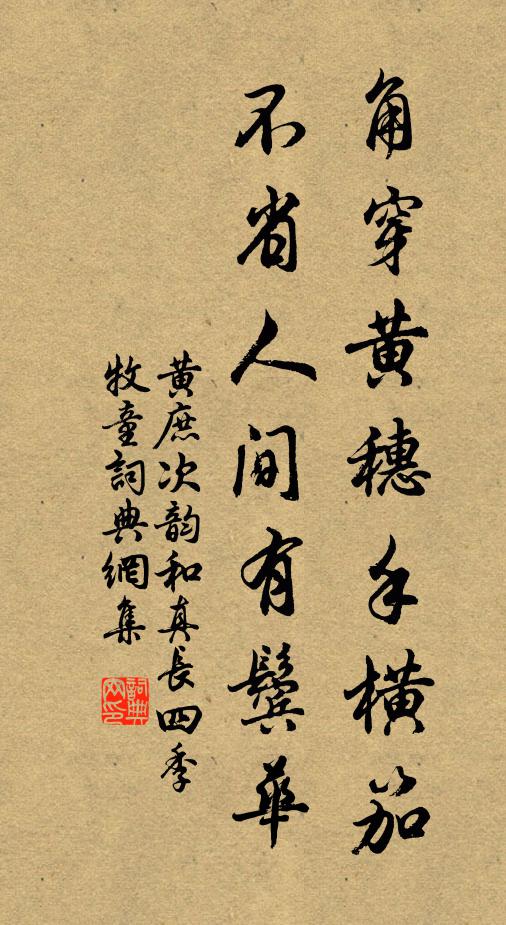 角穿黄穗手横笳
不省人间有鬓華
黄庶次韵和真長四季
牧童詞典網集
詞典网印